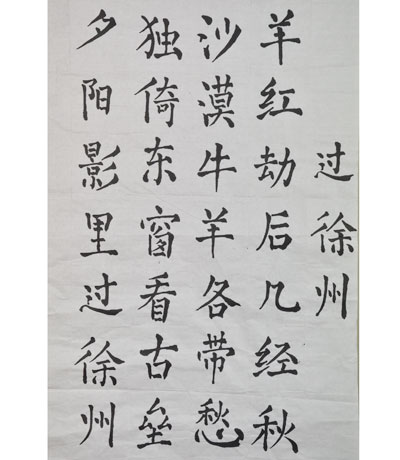 过徐州
羊红劫后几经秋
沙漠牛羊各带愁
独倚东窗看古垒
夕阳影里过徐州